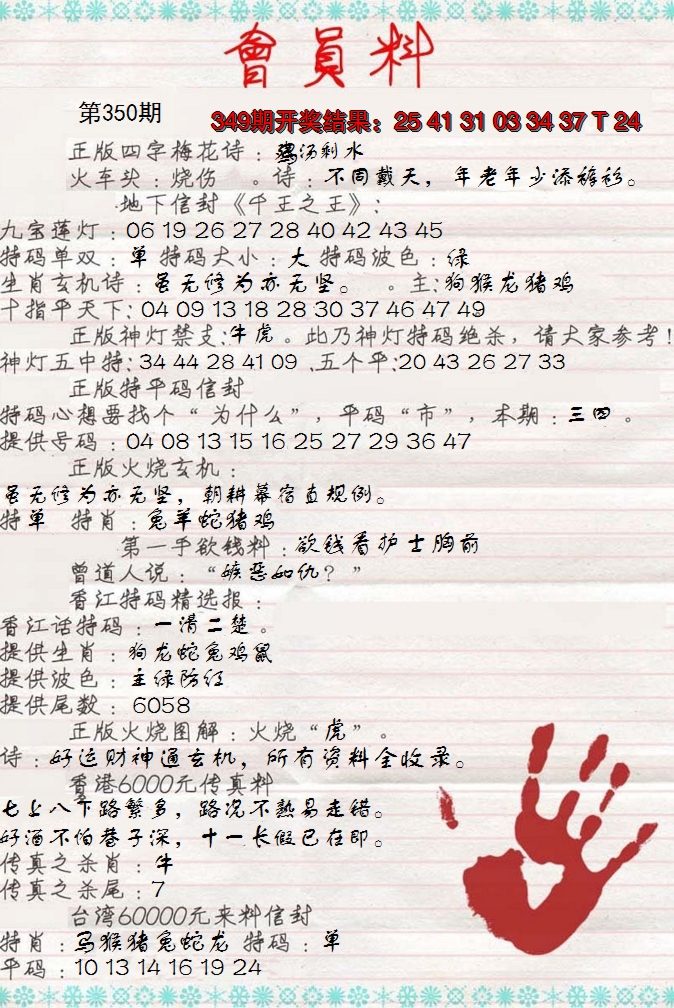 會員料
第350期
349期开奖结果：25 41 31 03 34 37 T 24
正版四字梅花诗：鸡汤剩水
火车头：烧伤 。诗：不同戴天，年老年少添裤衫。
地下信封《千王之王》：
九宝莲灯：06 19 26 27 28 40 42 43 45
特码单双：单 特码大小：大 特码波色：绿
生肖玄机诗：虽无修为亦无坚。 。主：狗猴龙猪鸡
十指平天下：04 09 13 18 28 30 37 46 47 49
正版神灯禁支：牛虎。此乃神灯特码绝杀，请大家参考！
神灯五中特：34 44 28 41 09 、五个平：20 43 26 27 33
正版特平码信封
特码心想要找个“为什么”，平码“市”，本期：三四。
提供号码：04 08 13 15 16 25 27 29 36 47
正版火烧玄机：
虽无修为亦无坚，朝耕暮宿直规例。
特单 特肖：兔羊蛇猪鸡
第一手欲钱料：欲钱看护士胸前
曾道人说：“嫉恶如仇？”
香江特码精选报：
香江话特码：一清二楚。
提供生肖：狗龙蛇兔鸡鼠
提供波色：主绿防红
提供尾数：6058
正版火烧图解：火烧“虎”。
诗：好运财神通玄机，所有资料全收录。
香港6000元传真料
七上八下路繁多，路况不熟易走错。
好酒不怕巷子深，十一长假已在即。
传真之杀肖：牛
传真之杀尾：7
台湾60000元来料信封
特肖：马猴猪兔蛇龙 特码：单
平码：10 13 14 16 19 24